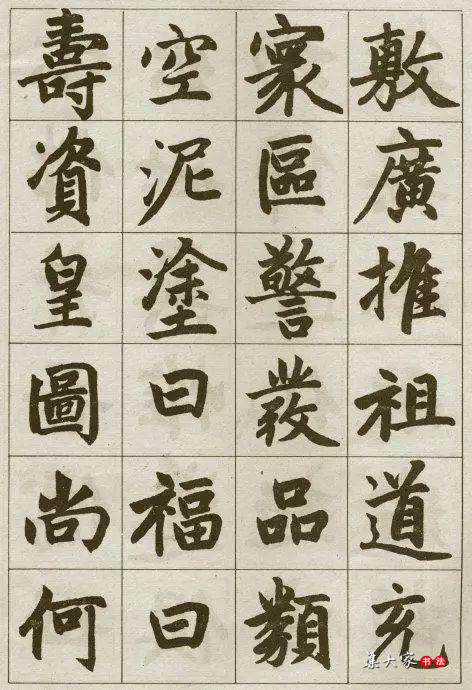 敷廣推祖道
寰區警發品類
空泥塗曰福曰
壽資皇圖尚何
集大家
书法